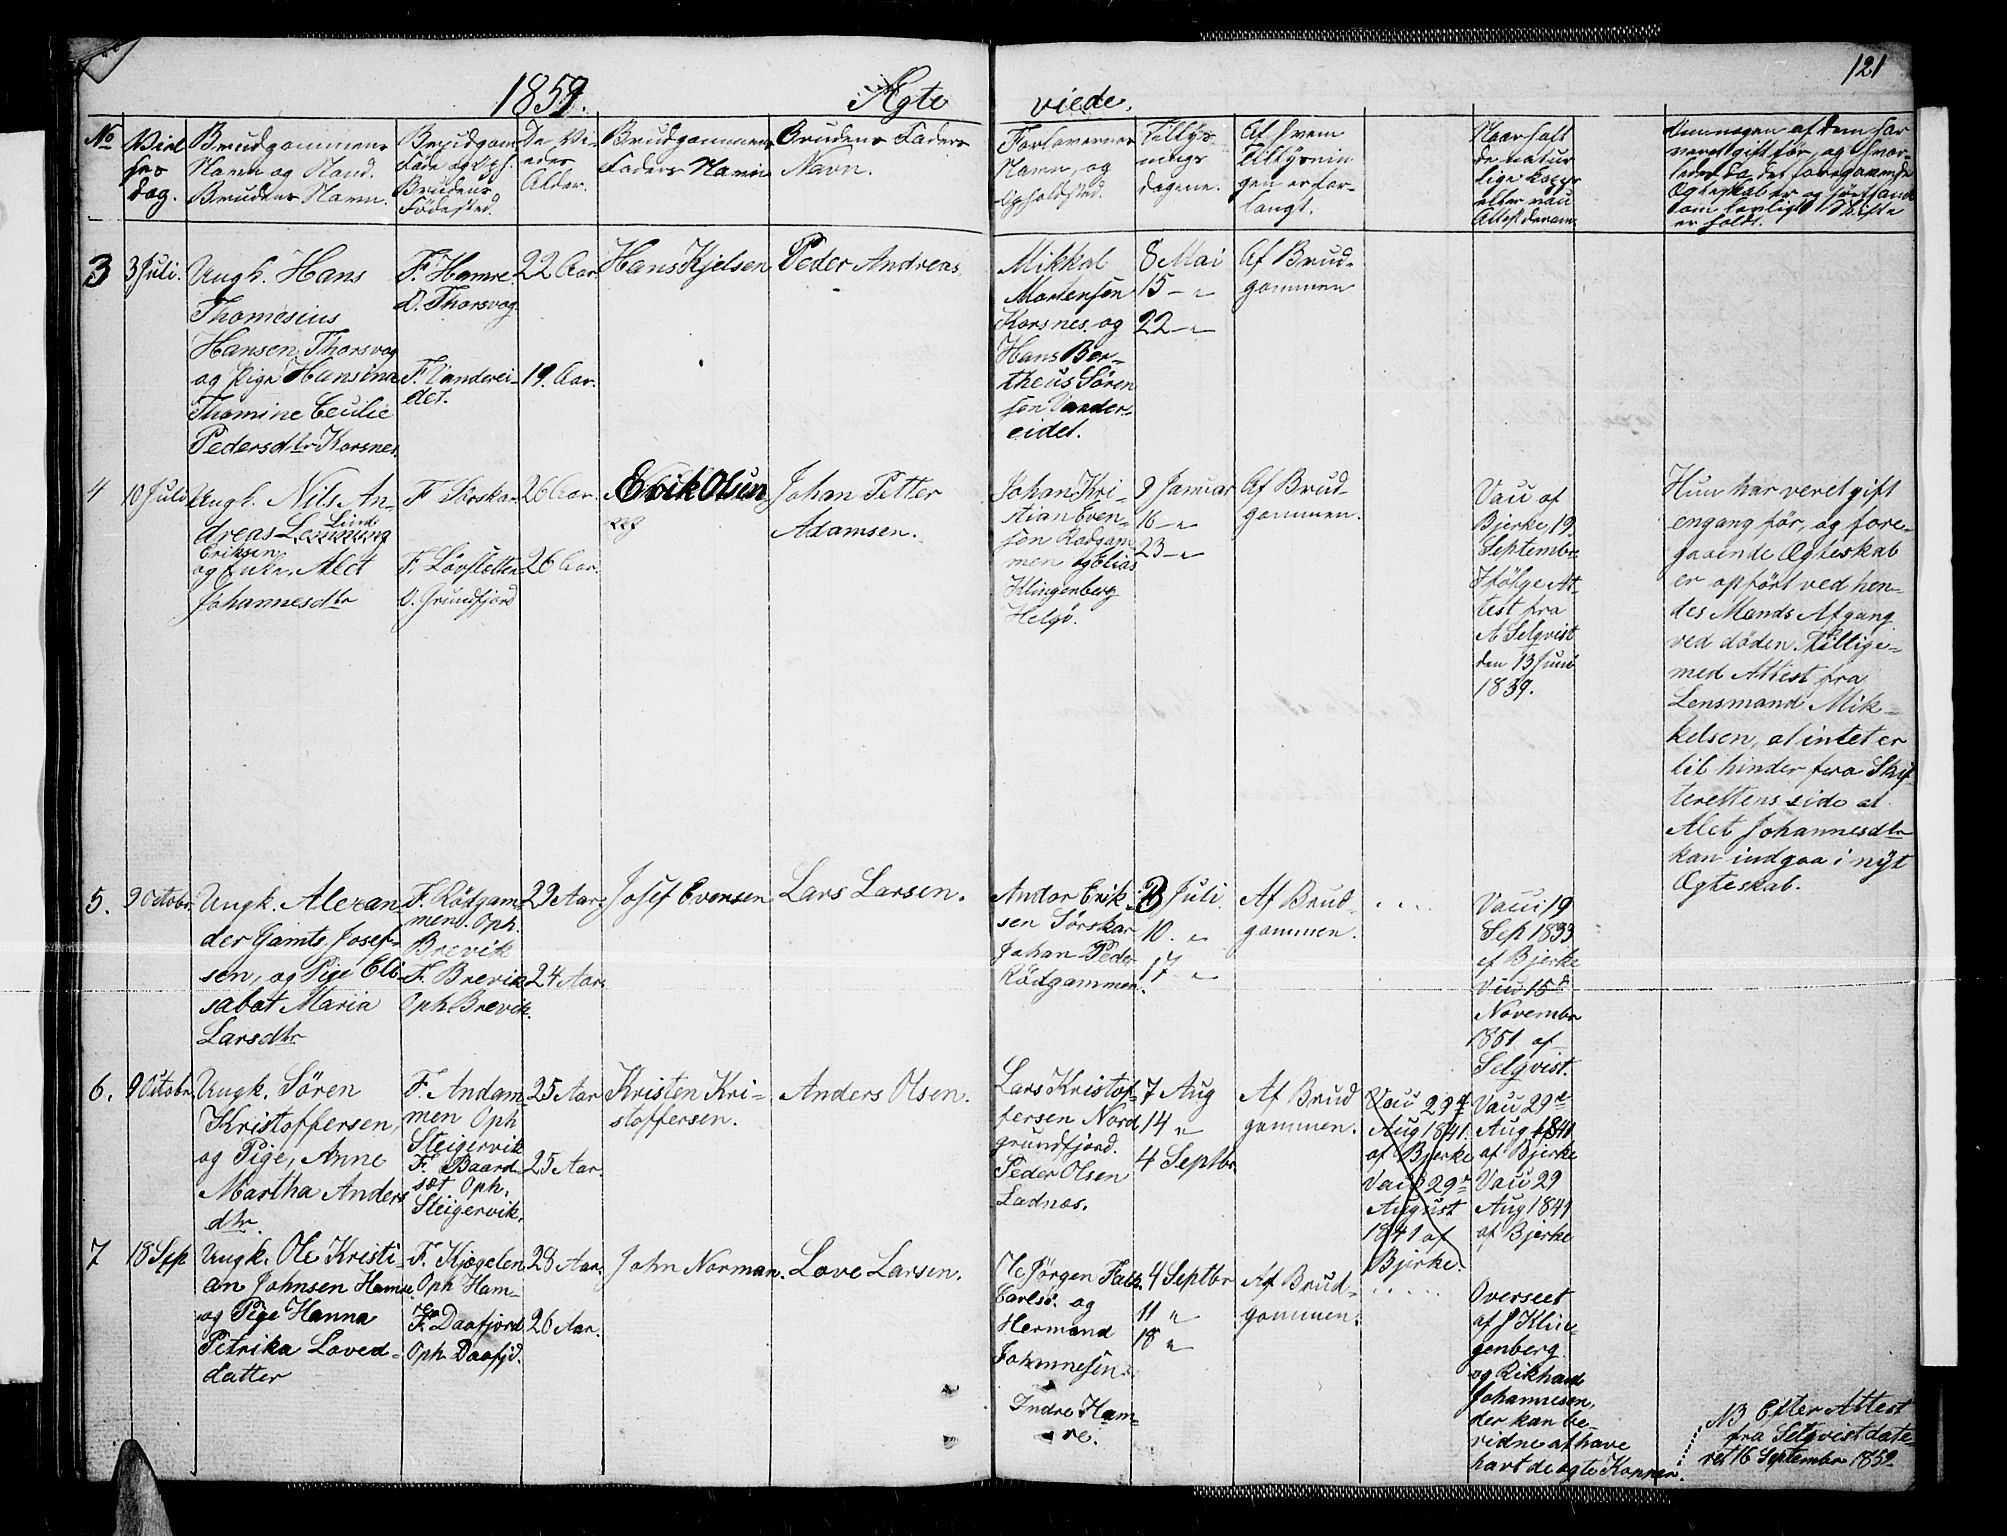 121
1859.
Ægte
viede.
No
Viel
ses
dag.
Brudgommens
Navn og Stand.
Brudens Navn.
Brudgom
Føde og Oph.
Brudens
Fødested.
De Vi-
edes
Alder.
Brudgommens
Faders Navn
Brudens Faders
Navn.
Forlovernes
Navn, og
Opholdsted.
Tillys-
nings
dagene.
Af hvem
Tillysnin
gen er for-
langt.
Naar haft
de natur
lige Kopper
eller vau
Attest derom.
Om nogen af dem har
været gift før, og hvor-
ledes da det foregaaende
Ægteskab er ophørt samt
om lovligt Skifte
er holdt.
3
3 Juli.
Ungk. Hans
Thomesius
Hansen, Thorsvog
og Pige Hansina
Thomine Cecilie
Pedersdtr Korsnes.
F. Hamre
O. Thorsvog.
F. Vanderei-
det.
22 Aar.
19. Aar.
Hans Kjelsen
Peder Andreas.
Mikkal
Mortensen
Korsnes. og
Hans Ber-
theus Søren
sen Vander-
eidet.
8 Mai
15 - "
22 - "
Af Brud-
gommen
4
10 Juli
Ungk. Nils An-
dreas Lemming
Lind
Eriksen
og Enke, Alet
Johannesdtr
F Sørskar
F. Løvsletten
O. Grundfjord
26 Aar.
26 Aar.
Erik Olsen
Johan Petter
Adamsen.
Johan Kri-
stian Even-
sen Rødgam
men og Elias
Klingenberg
Helgø.
9 Januar
16 - "
23 - "
Af Brud-
gommen.
Vau af
Bjerke 19
September
Ifølge At-
test fra
A Selqvist
den 13 Juni
1839.
Hun har veret gift
engang før, og fore-
gaaende Ægteskab
er ophørt ved hen-
des Mands Afgang
ved døden. Tillige-
med Attest fra
Lensmand Mik-
kelsen, at intet er
til hinder fra Skif-
terettens side at
Alet Johannesdtr
kan indgaa i nyt
Ægteskab.
5.
9 Octobr.
Ungk. Alexan-
der Gamts Josef-
sen, og Pige Eli-
sabat Maria
Larsdtr
F. Rødgam-
men. Oph.
Brevik
F. Brevik
Oph. Brevik.
29 Aar.
24 Aar.
Josef Evensen
Lars Larsen.
Andor Erik-
sen Sørskar
Johan Peder
Rødgammen.
3 Juli.
10. "
17 - "
Af Brud-
gommen.
. . . .
Vau 19
Sep 1833
af Bjerke
Vau 15d
November
1851 af
Selqvist.
6.
9 Octobr.
Ungk. Sören
Kristoffersen,
og Pige, Anne
Martha Anders
dtr.
F. Andam-
men Oph
Steigervik
F. Baard-
sæt Oph.
Steigervik.
25 Aar
25 Aar.
Kristen Kri-
stoffersen.
Anders Olsen.
Lars Kristof-
fersen Nord
grundfjord.
Peder Olsen
Ladnæs.
7 Aug
14 "
4 Septbr.
Af Brud
gommen.
Vau 29
Aug 1841.
af Bjerke
Vau 29
August
1841 af
Bjerke.
Vau 29
Aug 1841
af Bjerke
Vau 29
Aug 1841
af Bjerke
7
18 Sep
Ungk. Ole Kristi-
an Johnsen Hamre.
og Pige Hanna
Petrika Loved-
datter
F. Kjøgelen
Oph Ham-
re
F. Daafjord
Oph. Daafjd.
28 Aar.
26 Aar.
John Norman.
Love Larsen.
Ole Jørgen Falk.
Carlsø. og
Hermand
Johannesen.
Indre Ham-
re.
4 Septbr
11 "
18 "
Af Brud-
gommen.
. . . . .
Overseet
af J Klin-
genberg
og Rikhard
Johannesen,
der kan be-
vidne at have
havt de ægte Kopper.
NB Efter Attest
fra Selqvist date-
ret 16 September 1859